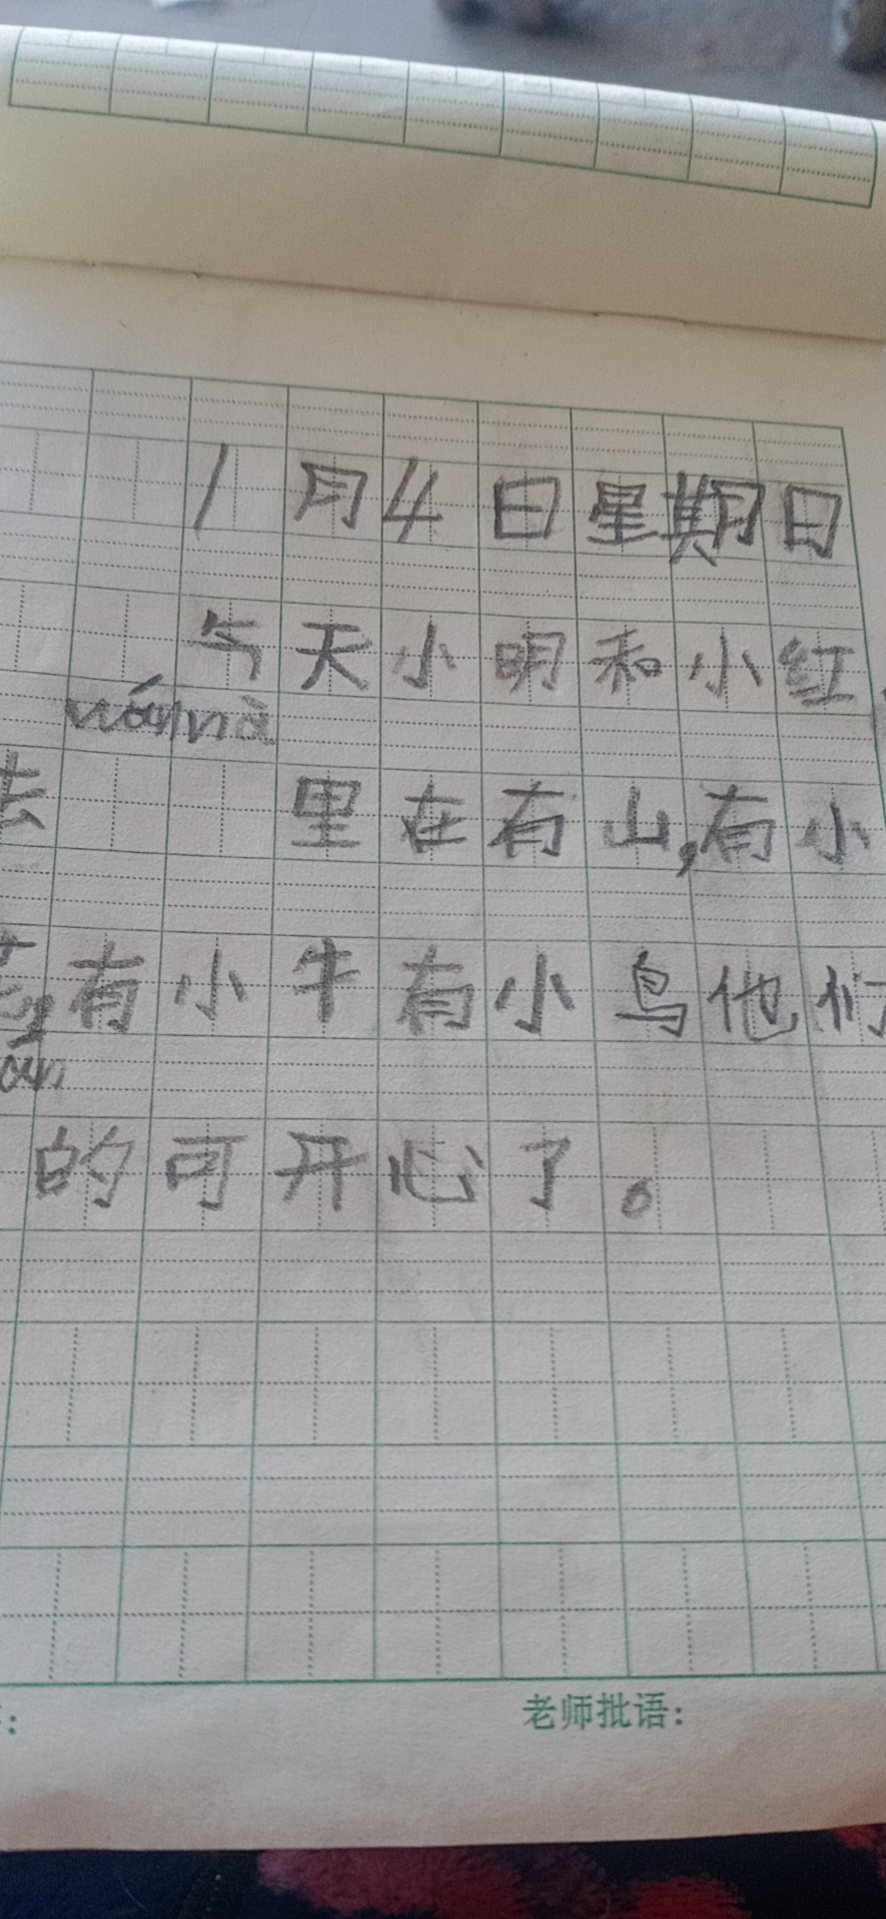 1月4日星期日
今天小明和小红
wánnà
去 里在有山,有小
有小牛有小鸟他们
án
的可开心了。
老师批语: